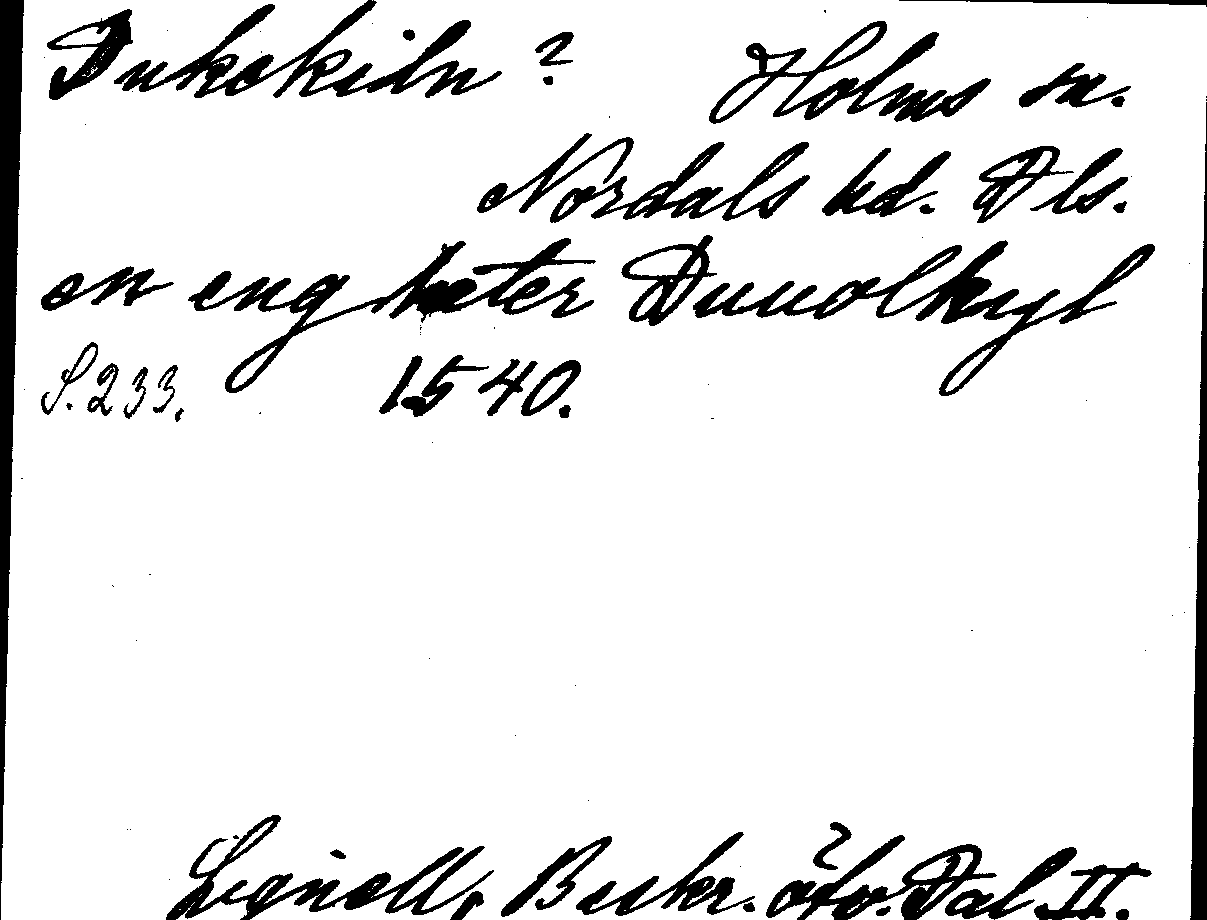 Dukekiln ? Holms sn.
Nordals hd. Dls.
en eng heter Duuolkyl
S. 233. 1540.
Lignell, Beskr. öfv. Dal II.